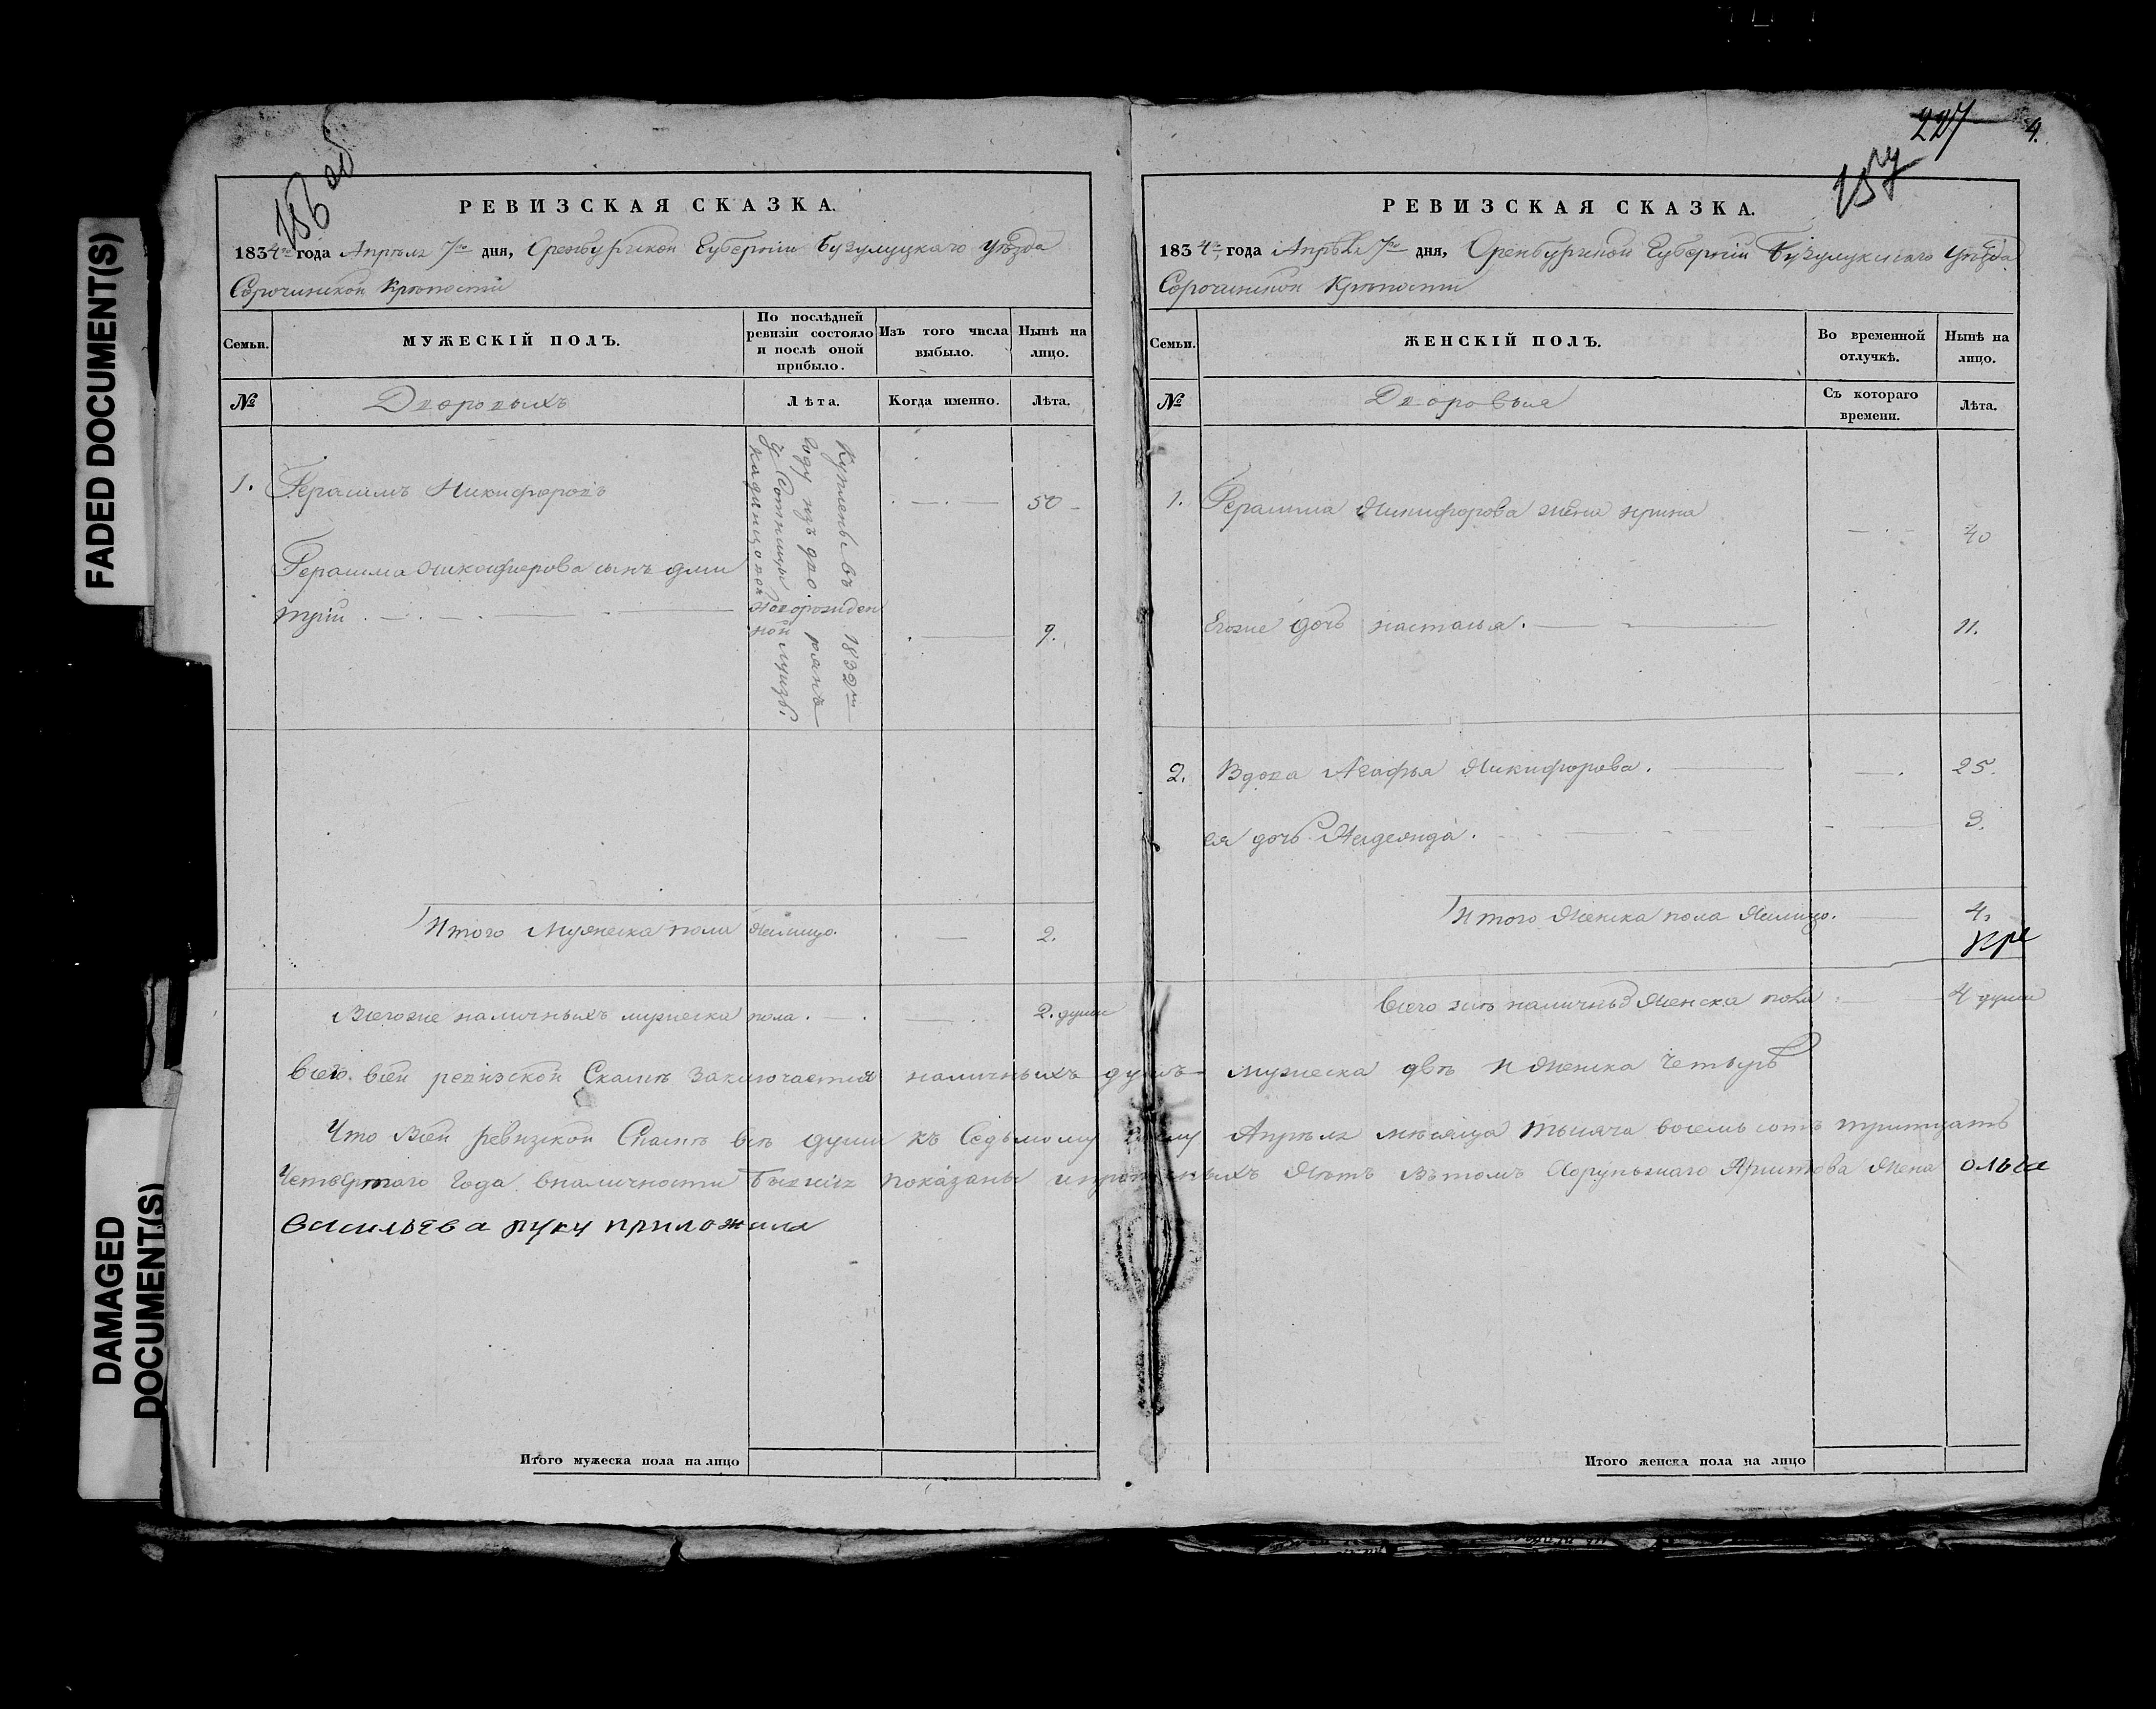 FADED DOCUMENT(S)
DAMAGED
DOCUMENT(S)
156 об
РЕВИЗСКАЯ СКАЗКА.
1834го года Апреля 7го дня, Оренбургской Губернїи Бузулуцкаго Уѣзда
Сорочинской Крѣпости
Семьи.
МУЖЕСКІЙ ПОЛЪ.
По послѣдней
ревизіи состояло
и послѣ оной
прибыло.
Изъ того числа
выбыло.
Нынѣ на
лицо.
№
Дворовыхъ
Лѣта.
Когда именно.
Лѣта.
1. Герасимъ Никифоровъ 50
Куплены въ 1832м
году изъ дво рянъ
у Сотницы
Герасима Никифорова сынъ дми
трій новорожден 9.
ной
Итого Мужеска пола налицо. 2.
Всегоже наличныхъ мужеска пола. 2. души
227
4.
157
РЕВИЗСКАЯ СКАЗКА.
1834го года Апрѣля 7го дня, Оренбургской Губерніи Бузулукскаго Уѣзда
Сорочинской Крѣпости
Семьи.
ЖЕНСКІЙ ПОЛЪ.
Во временной
отлучкѣ.
Нынѣ на
лицо.
№
Дворовыя
Съ котораго
времени.
Лѣта.
1. Герасима Никифорова жена ирина 40
Егоже дочь настасья. 11.
2. Вдова Агафья Никифорова. 25.
ея дочь 3.
Итого Женска пола Налицо. 4.
Всего жъ наличныхъ Женска пола 4 души
всего. всей ревизской Сказкѣ Заключается наличныхъ душъ мужеска двѣ и Женска Четыре
Что Всей ревизской Сказкѣ всѣ души къ Седьмому Апрѣля мѣсяца тысяча восемь сотъ тритцать
Четвертаго Года вналичности Бывшіе показаны Лѣтъ Вътомъ Хорунжаго Жена ольга
Васильева руку приложила
Итого мужеска пола на лицо
Итого женска пола на лицо